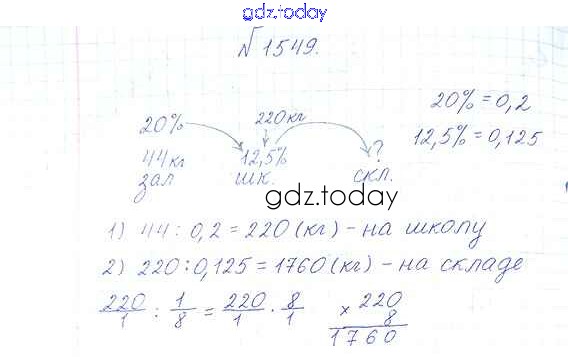 gdz.today
№1549.
20% 220кг 20% = 0,2
44кг 12,5% ? 12,5% = 0,125
зал шк. скл.
gdz.today
1) 44 : 0,2 = 220 (кг) - на школу
2) 220 : 0,125 = 1760 (кг) - на складе
220/1 : 1/8 = 220/1 · 8/1 × 220
8
1760